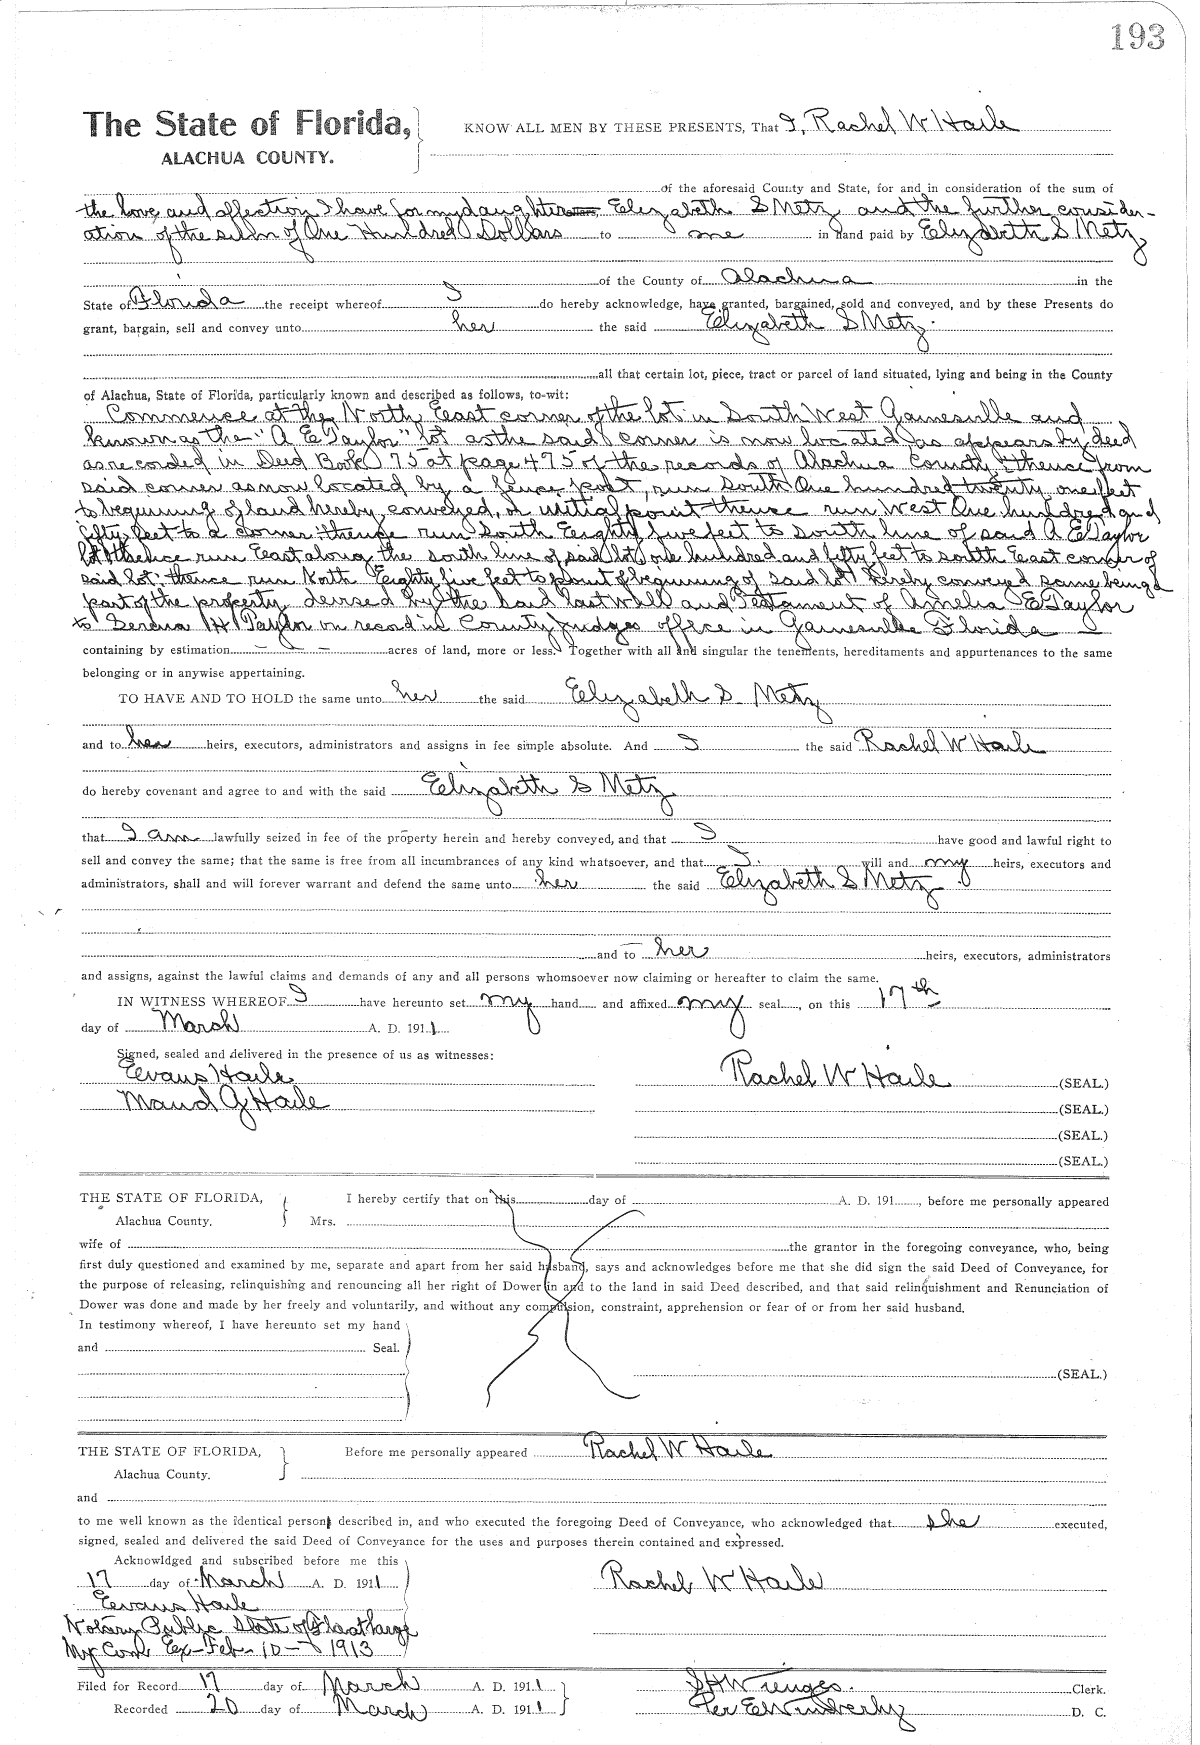 193
The State of Florida, KNOW ALL MEN BY THESE PRESENTS, That I, Rachel W Haile
ALACHUA COUNTY.
of the aforesaid County and State, for and in consideration of the sum of
the love and affection I have for my daughter Elizabeth S Metz and the further consider-
ation of the sum of One Hundred Dollars to me in hand paid by Elizabeth S Metz
of the County of Alachua in the
State of Florida the receipt whereof I do hereby acknowledge, have granted, bargained, sold and conveyed, and by these Presents do
grant, bargain, sell and convey unto her the said Elizabeth S Metz.
all that certain lot, piece, tract or parcel of land situated, lying and being in the County
of Alachua, State of Florida, particularly known and described as follows, to-wit:
Commence at the North East corner of the lot in South West Gainesville and
known as the "A E Taylor" lot as the said corner is now located as appears by deed
as recorded in Deed Book 75 at page 475 of the records of Alachua County, thence from
said corner as now located by a fence post, run South One hundred twenty one feet
to beginning of land hereby conveyed, or initial point thence run West One hundred and
fifty feet to a corner thence run South Eighty five feet to South line of said A E Taylor
lot thence run East along the south line of said lot one hundred and fifty feet to south East corner of
said lot; thence run North Eighty five feet to point of beginning of said lot hereby conveyed same being a
part of the property devised by the said last will and Testament of Amelia E Taylor
to Serena H Taylor on record in County Judges office in Gainesville Florida —
containing by estimation - - - acres of land, more or less. Together with all and singular the tenements, hereditaments and appurtenances to the same
belonging or in anywise appertaining.
TO HAVE AND TO HOLD the same unto her the said Elizabeth S. Metz
and to her heirs, executors, administrators and assigns in fee simple absolute. And I the said Rachel W Haile
do hereby covenant and agree to and with the said Elizabeth S Metz
that I am lawfully seized in fee of the property herein and hereby conveyed, and that I have good and lawful right to
sell and convey the same; that the same is free from all incumbrances of any kind whatsoever, and that I. will and my heirs, executors and
administrators, shall and will forever warrant and defend the same unto her the said Elizabeth S Metz
and to her heirs, executors, administrators
and assigns, against the lawful claims and demands of any and all persons whomsoever now claiming or hereafter to claim the same.
IN WITNESS WHEREOF I have hereunto set my hand and affixed my seal, on this 17th
day of March A. D. 1911.
Signed, sealed and delivered in the presence of us as witnesses:
Evans Haile Rachel W Haile (SEAL.)
Maud G Haile (SEAL.)
(SEAL.)
(SEAL.)
THE STATE OF FLORIDA, I hereby certify that on this day of A. D. 191 , before me personally appeared
Alachua County. Mrs.
wife of the grantor in the foregoing conveyance, who, being
first duly questioned and examined by me, separate and apart from her said husband, says and acknowledges before me that she did sign the said Deed of Conveyance, for
the purpose of releasing, relinquishing and renouncing all her right of Dower in and to the land in said Deed described, and that said relinquishment and Renunciation of
Dower was done and made by her freely and voluntarily, and without any compulsion, constraint, apprehension or fear of or from her said husband.
In testimony whereof, I have hereunto set my hand
and Seal.
(SEAL.)
THE STATE OF FLORIDA, Before me personally appeared Rachel W Haile
Alachua County.
and
to me well known as the identical person described in, and who executed the foregoing Deed of Conveyance, who acknowledged that she executed,
signed, sealed and delivered the said Deed of Conveyance for the uses and purposes therein contained and expressed.
Acknowldged and subscribed before me this
17 day of March A. D. 1911 Rachel W Haile
Evans Haile
Notary Public State of Fla at large
My Com Ex-Feb-10-1913
Filed for Record 17 day of March A. D. 1911 S H Wienges. Clerk.
Recorded 20 day of March A. D. 1911 Per E Wimberly D. C.